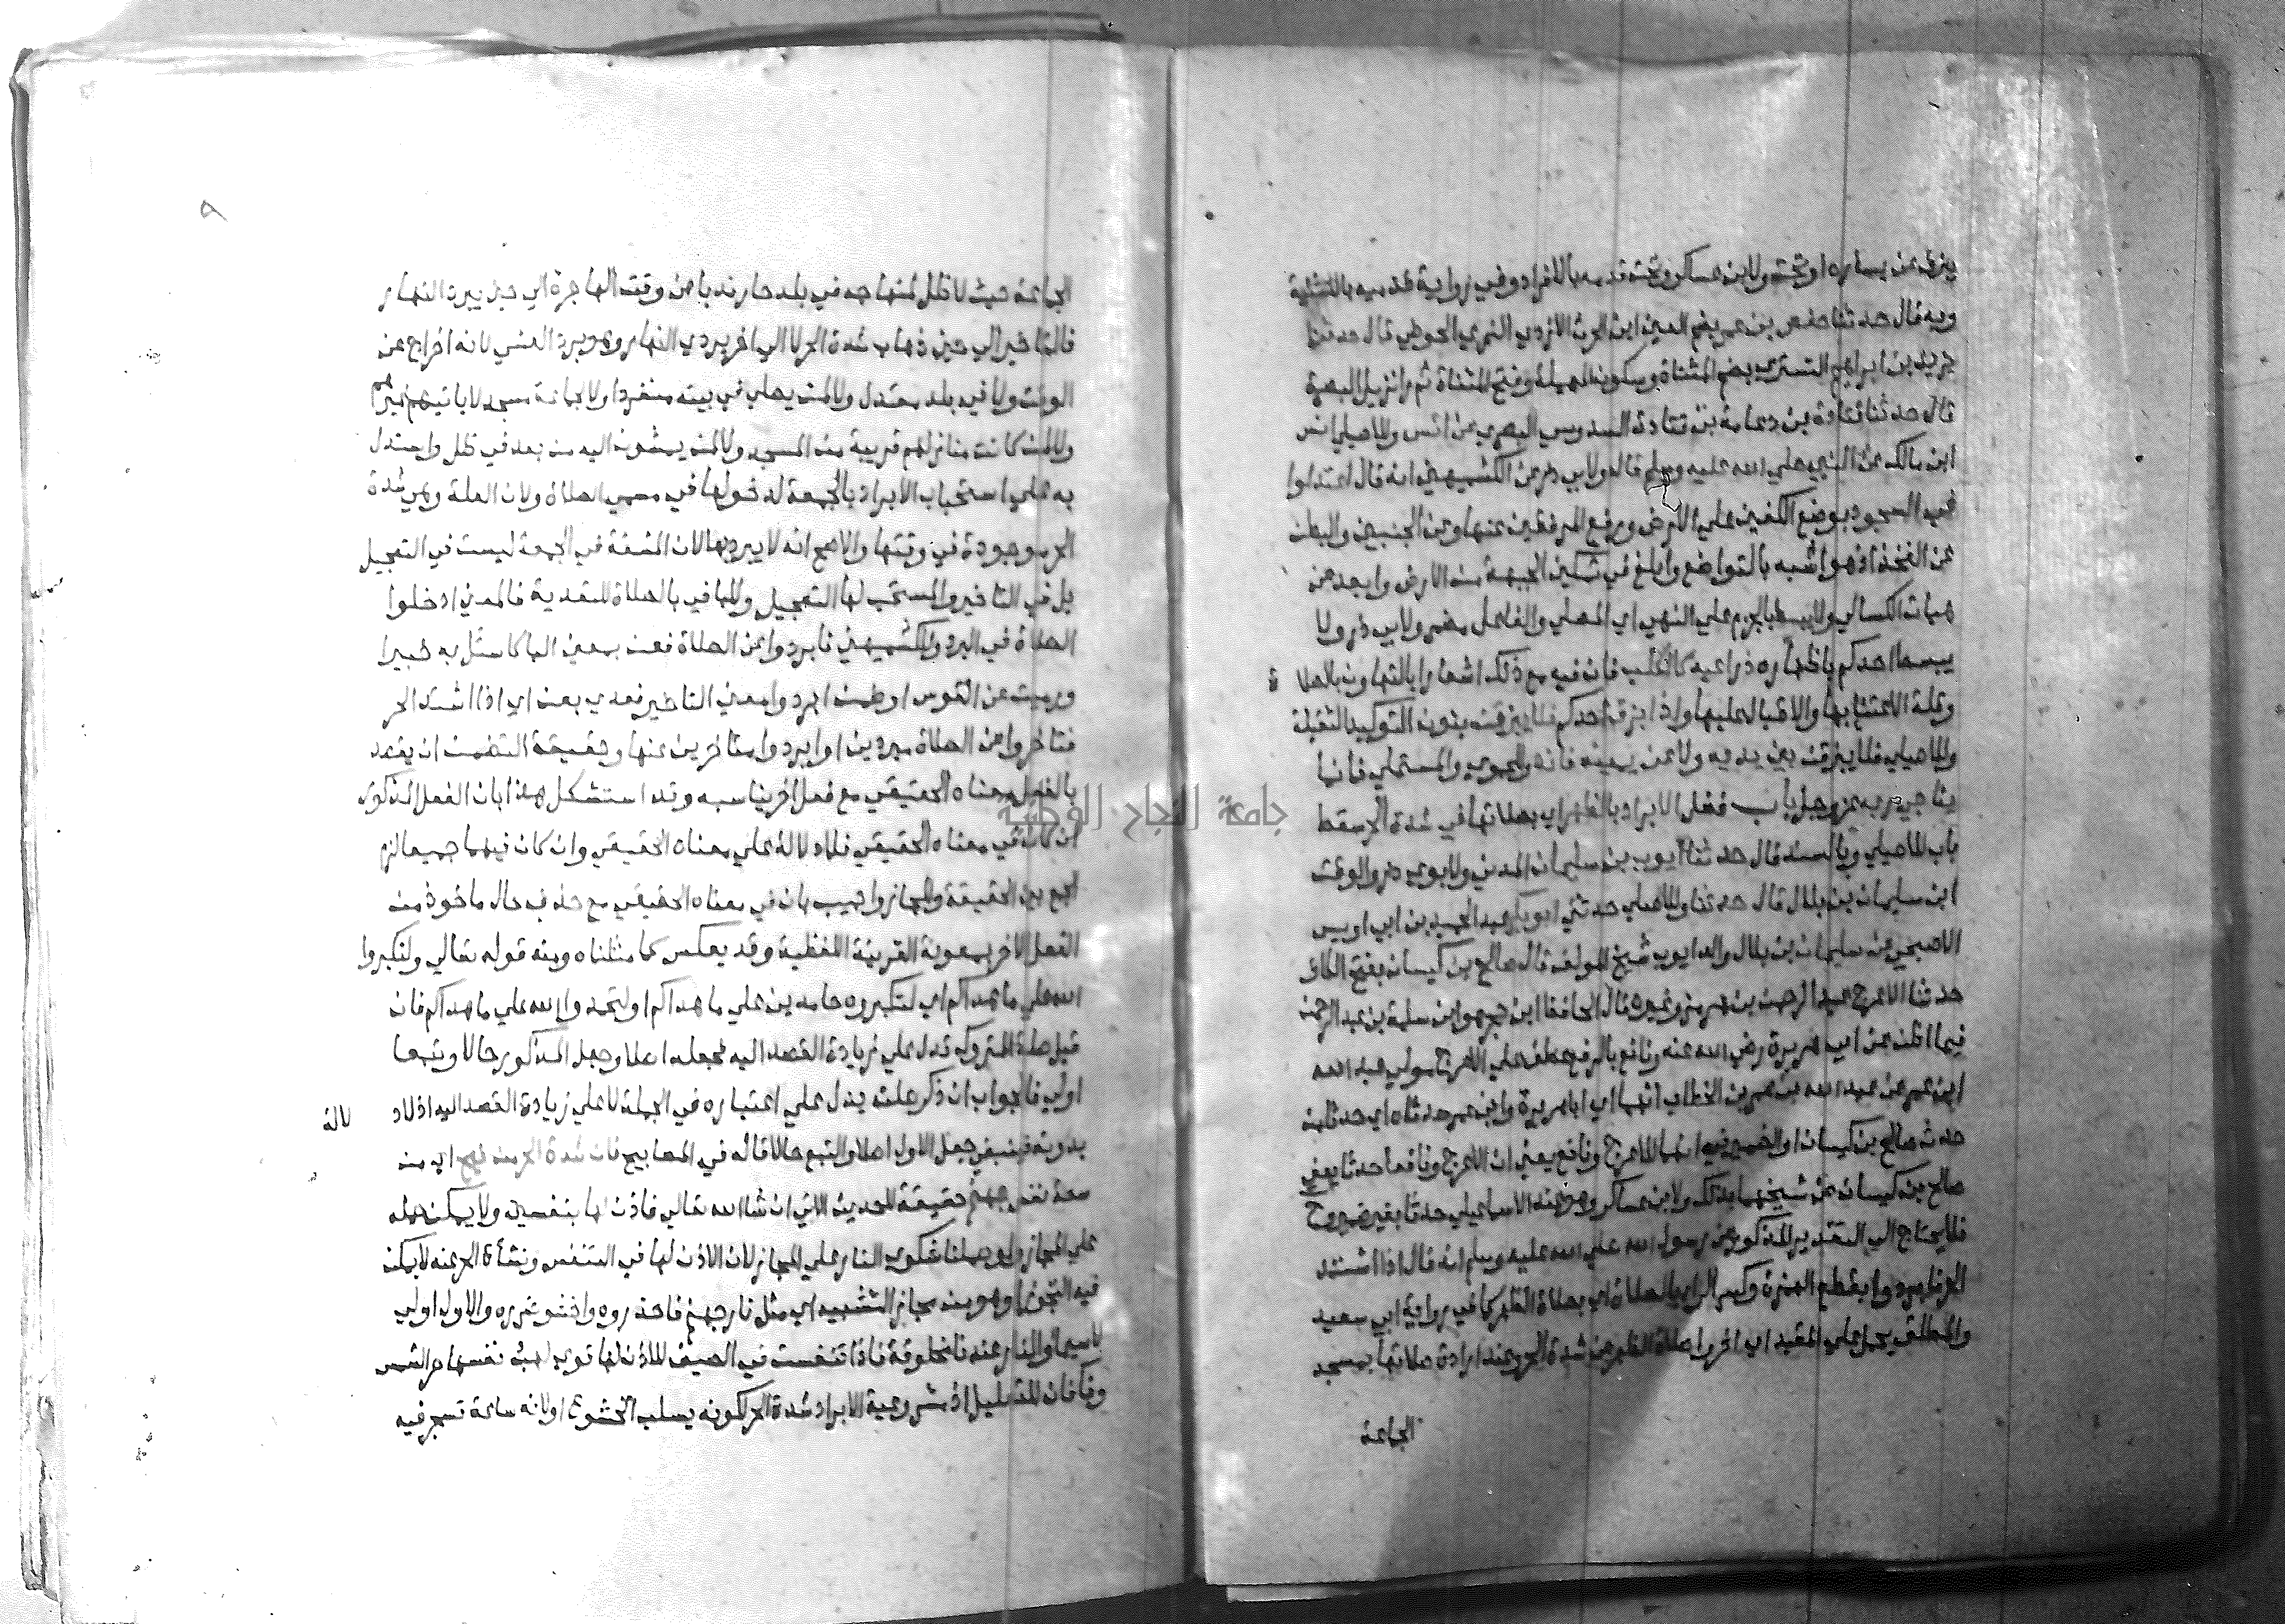 يبزق عن يساره او تحت ولابن عساكر وتحت قدمه بالافراد وفي رواية قدميه بالتثنية
وبه قال حدثنا حفص بن عمر بضم العين ابن الحرث الازدي النمري الحوطي قال حدثنا
يزيد بن ابراهيم التستري بضم المثناة وسكون المهملة وفتح المثناة ثم را نزيل البصرة
قال حدثنا قتادة بن دعامة بن قتادة السدوسي البصري عن انس وللاصيلي انس
ابن مالك عن النبي صلي الله عليه وسلم قال ولابي ذر عن الكشميهني انه قال اعتدلوا
في السجود بوضع الكفين علي الارض ورفع المرفقين عنها وعن الجنبين والبطن
عن الفخذ اذ هو اشبه بالتواضع وابلغ في تمكين الجبهة من الارض وابعد من
هيات الكسالي ولا يبسط بالجزم علي النهي اي المصلي والفاعل مضمر ولابي ذر ولا
يبسط احدكم باظهاره ذراعيه كالكلب فان فيه مع ذلك اشعارا بالتهاون بالصلا ة
وقلة الاعتنا بها والاقبال عليها واذا بزق احدكم فلا يبزقن بنون التوكيد الثقيلة
وللاصيلي فلا يبزقن بين يديه ولا عن يمينه فانه وللحموي والمستملي فانما
يناجي ربه عز وجل باب فضل الابراد بالظهر اي بصلاتها في شدة الحر سقط
باب للاصيلي وبالسند قال حدثنا ايوب بن سليمان المدني ولابوي ذر والوقت
ابن سليمان بن بلال قال حدثنا وللاصيلي حدثني ابو بكر عبد الحميد بن ابي اويس
الاصبحي عن سليمان بن بلال والد ايوب شيخ المولف قال صالح بن كيسان بفتح الكاف
حدثنا الاعرج عبد الرحمن بن هرمز وغيره قال الحافظ ابن حجر هو ابن سلمة بن عبد الرحمن
فيما اظن عن ابي هريرة رضي الله عنه ونافع بالرفع عطف علي الاعرج مولي عبد الله
ابن عمر عن عبد الله بن عمر بن الخطاب انهما اي ابا هريرة وابن عمر حدثاه اي حدثا من
حدث صالح بن كيسان او الضمير في انهما للاعرج ونافع يعني ان الاعرج ونافعا حدثا يعني
صالح بن كيسان عن شيخهما بذلك ولابن عساكر وهو عند الاسماعيلي حدثا بغير ضمير وح
فلا يحتاج الي التقدير المذكور عن رسول الله صلي الله عليه وسلم انه قال اذا اشتد
الحر فابردوا بقطع الهمزة وكسر الرا بالصلاة اي بصلاة الظهر كما في رواية ابي سعيد
والمطلق يحمل علي المقيد اي اخروا صلاة الظهر عن شدة الحر عند ارادة صلاتها بمسجد
الجماعة
٩
الجماعة حيث لا ظل لمنهاجه في بلد حار ندبا عن وقت الهاجرة الي حين يبرد النهار
فالتاخير الي حين ذهاب شدة الحر لا الي اخر بردي النهار وهو برد العشي لانه اخراج عن
الوقت ولا في بلد معتدل ولا لمن يصلي في بيته منفردا ولا جماعة مسجد لا ياتيهم غيرهم
ولا لمن كانت منازلهم قريبة من المسجد ولا لمن يمشون اليه من بعد في ظل واستدل
به علي استحباب الابراد بالجمعة لدخولها في مسمي الصلاة ولان العلة وهي شدة
الحر موجودة في وقتها والاصح انه لا يبرد بها لان المشقة في الجمعة ليست في التعجيل
بل في التاخير والمستحب لها التعجيل والبا في بالصلاة للتعدية فالمعني ادخلوا
الصلاة في البرد وللكشميهني فابردوا عن الصلاة فعن بمعني البا كاسئل به خبيرا
ورميت عن القوس او ضمن ابردوا معني التاخير فعدي بعن اي اذا اشتد الحر
فتاخروا عن الصلاة مبردين او ابردوا متاخرين عنها وحقيقة التضمن ان يقصد
بالفعل معناه الحقيقي مع فعل اخر يناسبه وقد استشكل هذا بان الفعل المذكور
ان كان في معناه الحقيقي فلا دلالة علي معناه الحقيقي وان كان فيهما جميعا لزم
الجمع بين الحقيقة والمجاز واجيب بانه في معناه الحقيقي مع حذف حال ماخوذ من
الفعل الاخر بمعونة القرينة اللفظية وقد يعكس كما مثلناه ومنه قوله تعالي ولتكبروا
الله علي ما هداكم اي لتكبروه حامدين علي ما هداكم او لتحمدوا الله علي ما هداكم فان
قيل صلة المتروك تدل علي زيادة القصد اليه فجعله اصلا وجعل المذكور حالا وتبعا
اولي فالجواب ان ذكر صلته يدل علي اعتباره في الجملة لا علي زيادة القصد اليه اذ لاد لالة
بدونه فينبغي جعل الاول اصلا والتبع حالا قاله في المصابيح فان شدة الحر من فيح اي من
سعة تنفس جهنم حقيقة للحديث الاتي ان شا الله تعالي فاذن لها بنفسين ولا يمكن حمله
علي المجاز ولو حملنا شكوي النار علي المجاز لان الاذن لها في التنفس ونشأة الحر عنه لا يمكن
فيه التجوز او هو من مجاز التشبيه اي مثل نار جهنم فاحذروه واخشو ضرره والاول اولي
لا سيما والنار عندنا مخلوقة فاذا تنفست في الصيف للاذن لها قوي لهب نفسها حر الشمس
وفا فان للتعليل اذ مشروعية الابراد شدة الحر لكونه يسلب الخشوع او لانه ساعة تسجر فيه
جامعة النجاح الوطنية